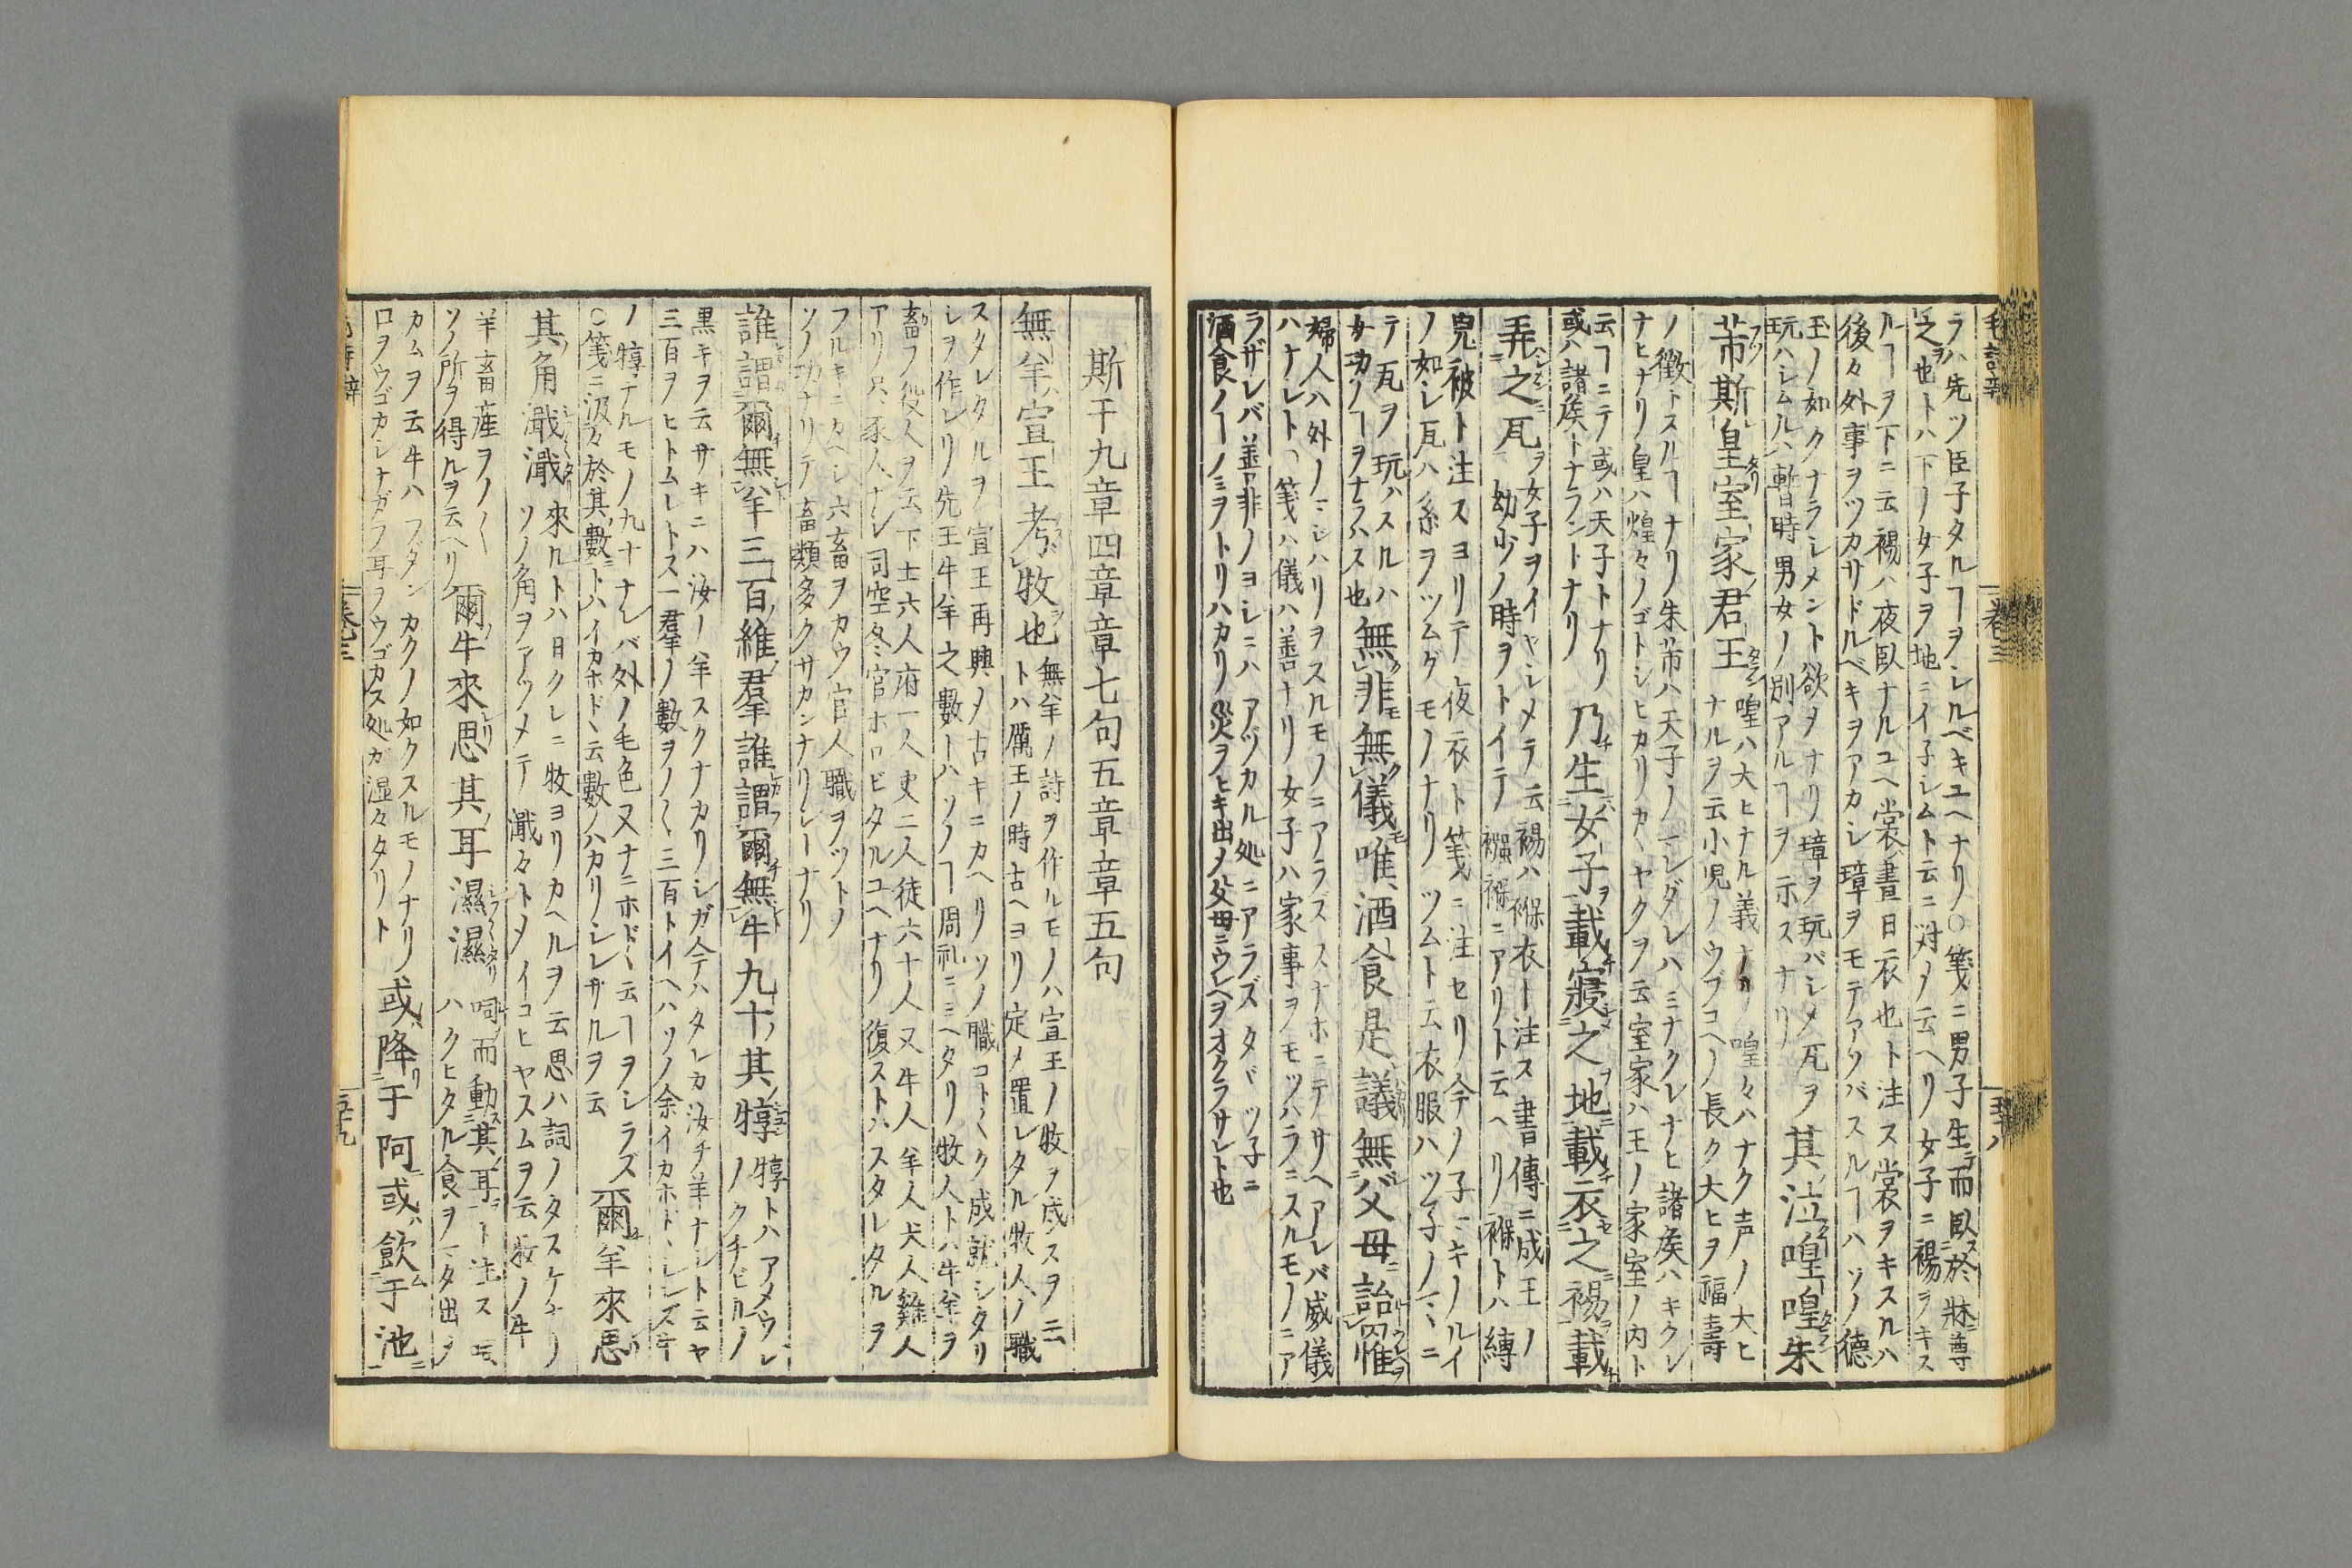 毛詩辨 卷三 五十八
ラハ先ツ臣子タルヿヲシルベキユヘナリ〇箋ニ男子生テ而臥於牀尊
之也トハ下ノ女子ヲ地ニイ子シムト云ニ対メ云ヘリ女子ニ裼ヲキス
ルヿヲ下ニ云裼ハ夜臥ナルユヘ裳晝日衣也ト注ス裳ヲキスルハ
後々外事ヲツカサドルベキヲアカシ璋ヲモテアソバスルヿハソノ德
玉ノ如クナラシメント欲ヲナリ璋ヲ玩バシメ瓦ヲ
玩ハシムルハ暫時男女ノ別アルヿヲ示スナリ
其泣喤喤朱
芾斯皇室家君王
喤ハ大ヒナル義ナリ喤々ハナク声ノ大ヒ
ナルヲ云小児ノウブコヘノ長ク大ヒヲ福壽
ノ徴トスルヿナリ朱芾ハ天子ノマレダレハミナクレナヒ諸矦ハキクレ
ナヒナリ皇ハ煌々ノゴトシヒカリカヽヤクヲ云室家ハ王ノ家室ノ内ト
云ヿニテ或ハ天子トナリ
或ハ諸矦トナラントナリ
乃生女子載寢之地載衣之裼載
弄之瓦
女子ヲイヤシメテ云裼ハ褓衣ト注ス書傳ニ成王ノ
幼少ノ時ヲトイテ襁褓ニアリト云ヘリ褓トハ縛
兒被ト注スヨリテ夜衣ト箋ニ注セリ今ノ子マキノルイ
ノ如シ瓦ハ糸ヲツムグモノナリツムト云衣服ハツ子ノマヽニ
テ瓦ヲ玩ハスルハ
女功ノヿヲナラハス也
無非無儀唯酒食是議無父母詒罹
婦人ハ外ノマジハリヲスルモノニアラズスナホニテサヘアレバ威儀
ハナレト箋ハ儀ハ善ナリ女子ハ家事ヲモツハラニスルモノニア
ラザレバ善非ノヨシニハアヅカル処ニアラズタヾツ子ニ
酒食ノヿノミヲトリハカリ災ヲヒキ出メ父母ニウレヘヲオクラサレト也
斯干九章四章章七句五章章五句
無羊宣王考牧也
無羊ノ詩ヲ作ルモノハ宣王ノ牧ヲ成スヲ云
トハ厲王ノ時古ヘヨリ定メ置レタル牧人ノ職
スタレタルヲ宣王再興メ古キニカヘリソノ職コトヽク成就シタリ
シヲ作レリ先王牛羊之數トハソノヿ周礼ニミヘタリ牧人トハ牛羊ヲ
畜フ役人ヲ云下士六人府一人史二人徒六十人又牛人羊人犬人雞人
アリ只豕人ナシ司空冬官ホロビタルユヘナリ復ストハスタレタルヲ
フルキニカヘシ六畜ヲカウ官人職ヲツトメ
ソノ功ナリテ畜類多クサカンナリシトナリ
誰謂爾無羊三百維羣誰謂爾無牛九十其犉
犉トハアメウシ
ノクチビルノ
黒キヲ云サキニハ汝ノ羊スクナカリシガ今ハタレカ汝チ羊ナシト云ヤ
三百ヲヒトムレトス一羣ノ數ヲノヘ三百トイヘハソノ余イカホドヽシレズ牛
ノ犉テルモノ九十ナレバ外ノ毛色又ナニホドヽ云ヿヲシラズ
〇箋ニ汲々於其數トハイカホドヽ云數ノハカリシレザルヲ云
爾羊來思
其角濈濈
來ルトハ日クレニ牧ヨリカヘルヲ云思ハ詞ノタスケナリ
ソノ角ヲアツメテ濈々トメイコヒヤスムヲ云牧ノ牛
羊畜産ヲノ〱
ソノ所ヲ得ルヲ云ヘリ
爾牛來思其耳濕濕
呞而動其耳ト注ス呞
ハクヒタル食ヲマタ出メ
カムヲ云牛ハフダンカクノ如クスルモノナリ
口ヲウゴカシナガラ耳ヲウゴカス処ガ湿々タリト
或降于阿或飲于池
卷三 五十九